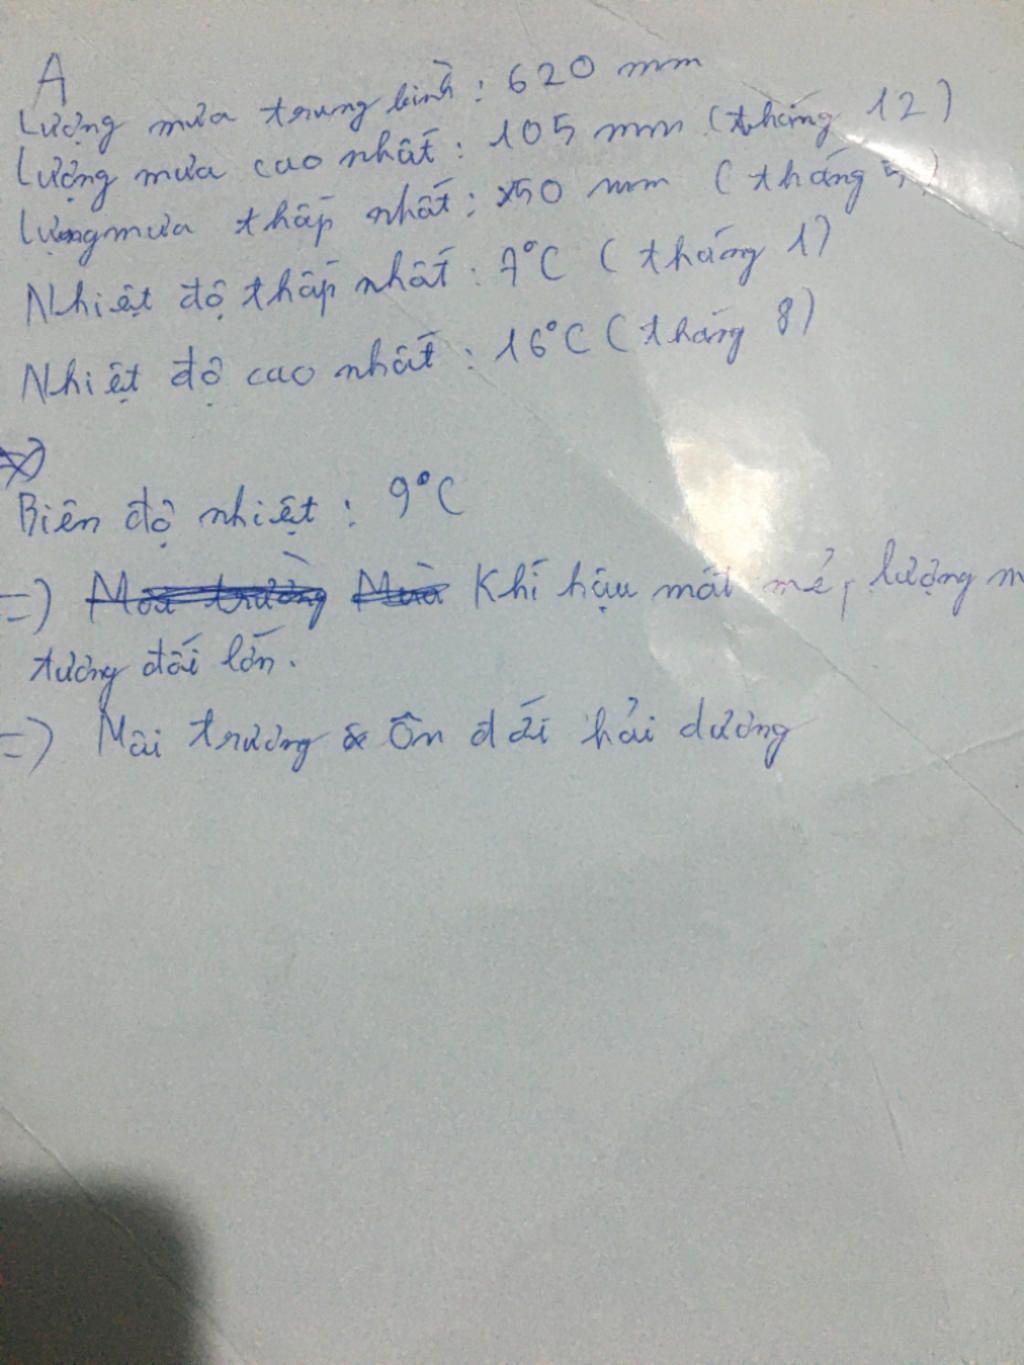 A
Lượng mưa trung bình: 620 mm
Lượng mưa cao nhất: 105 mm (tháng 12)
Lượng mưa thấp nhất: 50 mm (tháng 5)
Nhiệt độ thấp nhất: 7°C (tháng 1)
Nhiệt độ cao nhất: 16°C (tháng 8)
=>
Biên độ nhiệt: 9°C
=> Khí hậu mát mẻ, lượng m
tương đối lớn.
=> Môi trường Ôn đới hải dương